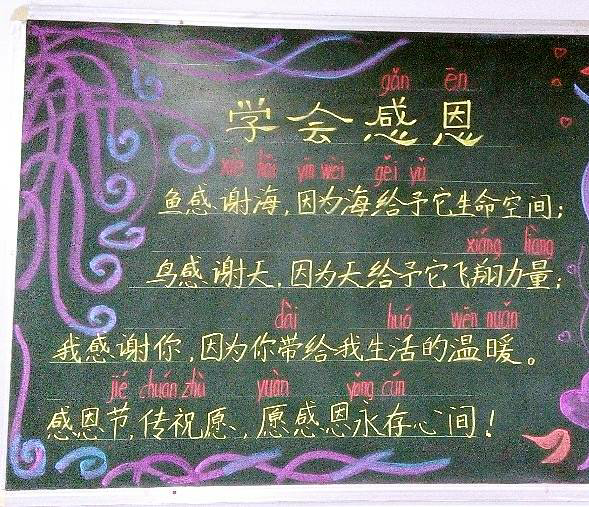 gǎn ēn
学会感恩
xiè hǎi yīn wèi gěi yǔ
鱼感谢海，因为海给予它生命空间；
xiáng liàng
鸟感谢天，因为天给予它飞翔力量；
dài huó wēn nuǎn
我感谢你，因为你带给我生活的温暖。
jié chuán zhù yuàn yǒng cún
感恩节，传祝愿、愿感恩永存心间！